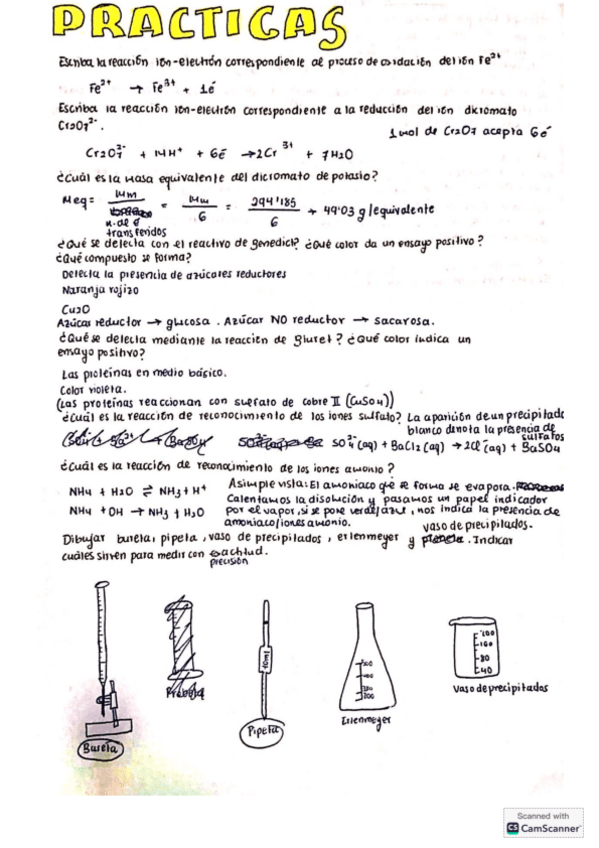 PRACTICAS
Escriba la reacción ion-electrón correspondiente al proceso de oxidación del ión Fe²⁺
Fe²⁺ → Fe³⁺ + 1é
Escriba la reacción ion-electrón correspondiente a la reducción del ion dicromato
Cr₂O₇²⁻.
1 mol de Cr₂O₇ acepta 6é
Cr₂O₇²⁻ + 14H⁺ + 6é → 2Cr³⁺ + 7H₂O
¿Cuál es la masa equivalente del dicromato de potasio?
Meq = Mm / n. de é transferidos = Mm / 6 = 294'185 / 6 → 49'03 g/equivalente
¿Qué se detecta con el reactivo de Benedict? ¿Qué color da un ensayo positivo?
¿Qué compuesto se forma?
Detecta la presencia de azúcares reductores
Naranja rojizo
Cu₂O
Azúcar reductor → glucosa. Azúcar NO reductor → sacarosa.
¿Qué se detecta mediante la reacción de Biuret? ¿Qué color indica un
ensayo positivo?
Las proteínas en medio básico.
Color violeta.
(Las proteínas reaccionan con sulfato de cobre II (CuSO₄))
¿Cuál es la reacción de reconocimiento de los iones sulfato? La aparición de un precipitado
blanco denota la presencia de
sulfatos
SO₄²⁻(aq) + BaCl₂(aq) → 2Cl⁻(aq) + BaSO₄
¿Cuál es la reacción de reconocimiento de los iones amonio?
NH₄ + H₂O ⇌ NH₃ + H⁺
NH₄ + OH → NH₃ + H₂O
A simple vista: El amoniaco que se forma se evapora.
Calentamos la disolución y pasamos un papel indicador
por el vapor, si se pone verde/azul, nos indica la presencia de
amoniaco/iones amonio.
Dibujar bureta, pipeta, vaso de precipitados, erlenmeyer y vaso de precipitados. Indicar
cuáles sirven para medir con exactitud.
precisión
Probeta
10ml
Bureta
Pipeta
Erlenmeyer
80
40
Vaso de precipitados
Scanned with
CS CamScanner